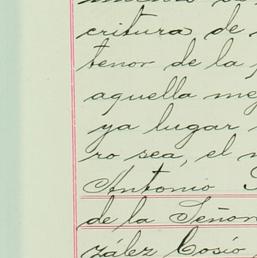 critura de
tenor de la
aquella me
ya lugar
ro sea, el
Antonio
de la Señor
zález Cosío